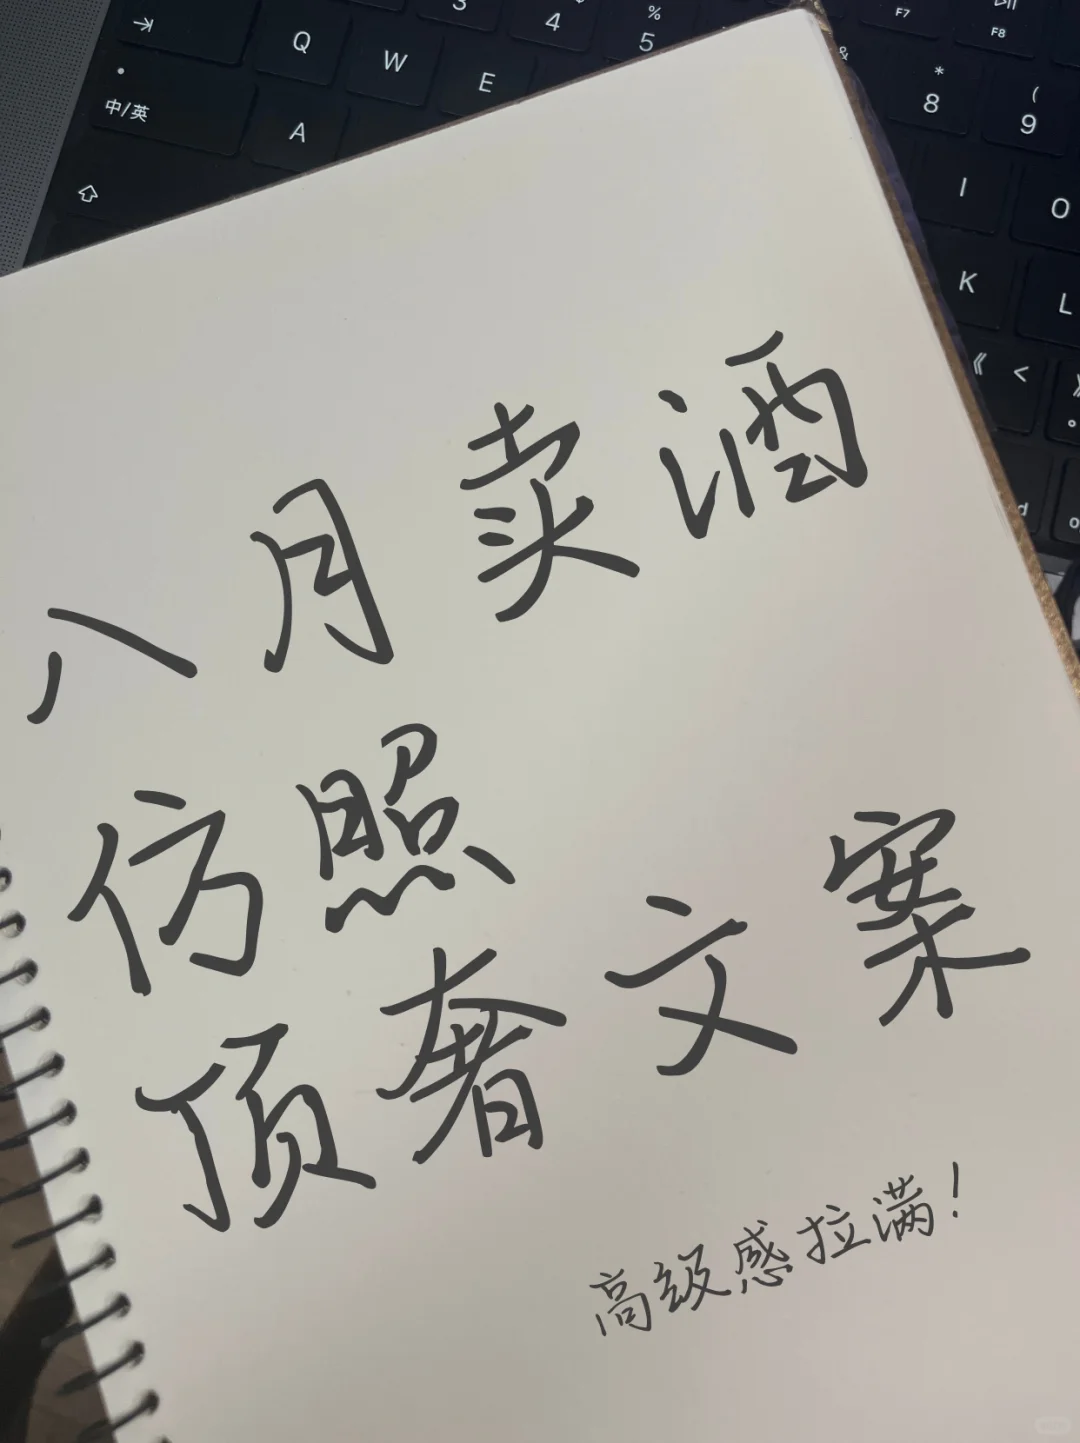 3
4
%
5
F7
F8
&
*
8
(
9
Q
W
E
I
O
中/英
A
K
L
《 <
d
八月卖酒
仿照
顶奢文案
高级感拉满!